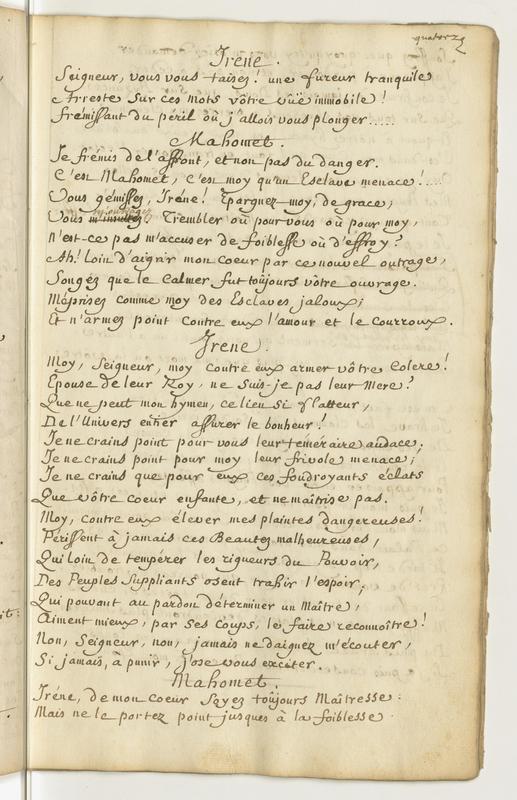 quatorze
Irene.
Seigneur, vous vous taisez! une fureur tranquile
Arreste sur ces mots vôtre vüe immobile!
frémissant du péril où j'allois vous plonger.....
Mahomet.
Je frémis de l'affront, et non pas du danger.
C'est Mahomet, c'est moy qu'un Esclave menace!....
Vous gémissez, Iréne! Epargnez-moy, de grace;
Vous m'insultez. Trembler où pour vous où pour moy,
n'est-ce pas m'accuser de foiblesse où d'éffroy?
Ah! Loin d'aigrir mon coeur par ce nouvel outrage,
Songéz que le calmer fut toûjours vôtre ouvrage.
Méprisez comme moy des Esclaves jaloux;
Et n'armez point contre eux l'amour et le courroux.
Irene.
Moy, Seigneur, moy contre eux armer vôtre Colere!
Epouse de leur Roy, ne suis-je pas leur Mere?
Que ne peut mon hymen, ce lien si flatteur,
De l'Univers entier assurer le bonheur!
Je ne crains point pour vous leur temeraire audace;
Je ne crains point pour moy leur frivole menace;
Je ne crains que pour eux ces foudroyants éclats
Que vôtre coeur enfante, et ne maîtrise pas.
Moy, contre eux élever mes plaintes dangereuses!
Périssent à jamais ces Beautez malheureuses,
Qui loin de tempérer les rigueurs du Pouvoir,
Des Peuples Suppliants osent trahir l'espoir;
Qui pouvant au pardon déterminer un Maître,
Aiment mieux, par ses coups, le faire reconnoître!
Non, Seigneur, non, jamais ne daignez m'écouter,
Si jamais, à punir, j'ose vous exciter.
Mahomet.
Iréne, de mon coeur Soyez toûjours Maîtresse:
Mais ne le portez point jusques à la foiblesse.